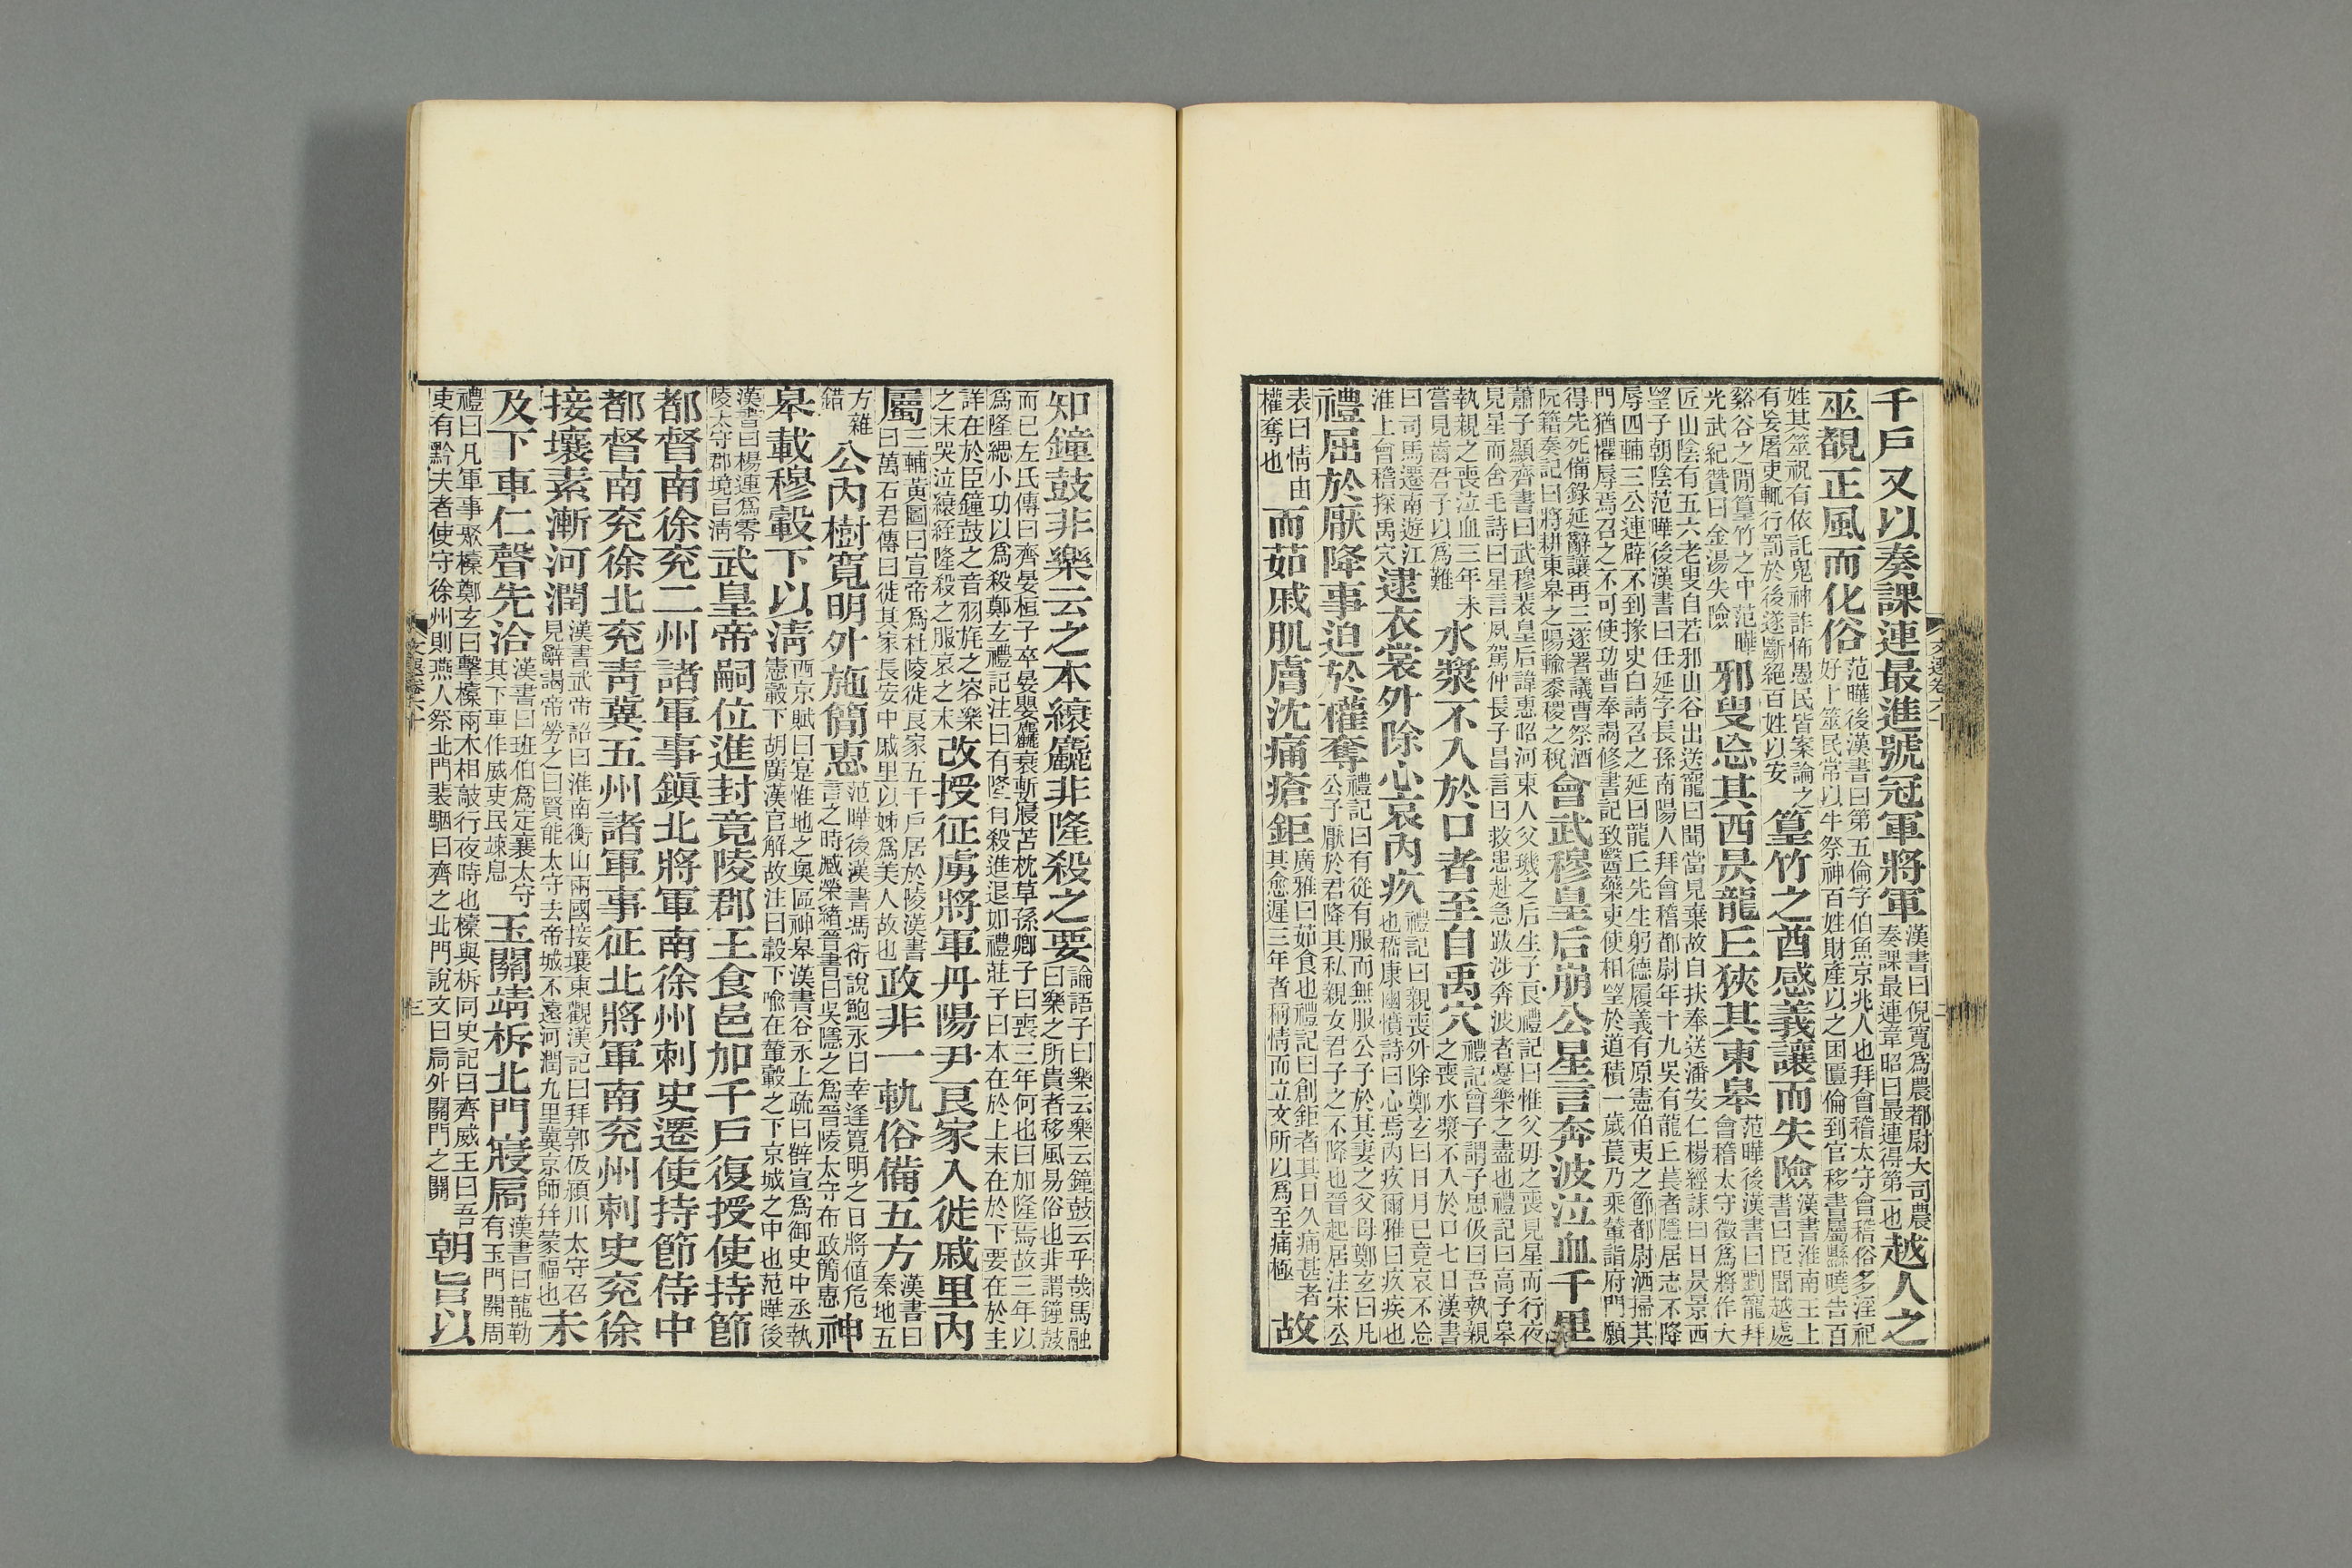 千戶又以奏課連最進號冠軍將軍漢書曰倪寬爲農都尉大司農奏課最連韋昭曰最連得第一也越人之
巫覩正風而化俗范曄後漢書曰第五倫字伯魚京兆人也拜會稽太守會稽俗多淫祀好卜筮民常以牛祭神百姓財產以之困匱倫到官移書屬縣曉告百
姓其筮祝有依託鬼神詐怖愚民皆案論之有妄屠吏輒行罰於後遂斷絕百姓以安篁竹之酋感義讓而失險漢書淮南王上書曰臣聞越處
谿谷之閒篁竹之中范曄光武紀贊曰金湯失險邪叟忘其西昃龍丘狹其東皋范曄後漢書曰劉寵拜會稽太守徵爲將作大
匠山陰有五六老叟自若邪山谷出送寵曰聞當見棄故自扶奉送潘安仁楊經誄曰日昃景西望子朝陰范曄後漢書曰任延字長孫南陽人拜會稽都尉年十九吳有龍丘萇者隱居志不降
辱四輔三公連辟不到掾史白請召之延曰龍丘先生躬德履義有原憲伯夷之節都尉洒掃其門猶懼辱焉召之不可使功曹奉謁修書記致醫藥吏使相望於道積一歲萇乃乘輦詣府門願
得先死備錄延辭讓再三遂署議曹祭酒阮籍奏記曰將耕東皋之陽輸黍稷之稅會武穆皇后崩公星言奔波泣血千里
蕭子顯齊書曰武穆裴皇后諱惠昭河東人父璣之后生子良禮記曰惟父母之喪見星而行夜見星而舍毛詩曰星言夙駕仲長子昌言曰救患赴急跋涉奔波者憂樂之盡也禮記曰高子皋
執親之喪泣血三年未嘗見齒君子以爲難水漿不入於口者至自禹穴禮記曾子謂子思伋曰吾執親之喪水漿不入於口七日漢書
曰司馬遷南遊江淮上會稽探禹穴逮衣裳外除心哀內疚禮記曰親喪外除鄭玄曰日月已竟哀不忘也嵇康幽憤詩曰心焉內疚爾雅曰疚疾也
禮屈於厭降事迫於權奪禮記曰有從有服而無服公子於其妻之父母鄭玄曰凡公子厭於君降其私親女君子之不降也晉起居注宋公
表曰情由權奪也而茹戚肌膚沈痛瘡鉅廣雅曰茹食也禮記曰創鉅者其日久痛甚者其愈遲三年者稱情而立文所以爲至痛極故
知鐘鼓非樂云之本縗麤非隆殺之要論語子曰樂云樂云鐘鼓云乎哉馬融曰樂之所貴者移風易俗也非謂鐘鼓
而已左氏傳曰齊晏桓子卒晏嬰麤衰斬寢苫枕草孫卿子曰喪三年何也曰加隆焉故三年以爲隆緦小功以爲殺鄭玄禮記注曰有隆有殺進退如禮莊子曰本在於上末在於下要在於主
詳在於臣鐘鼓之音羽旄之容樂之末哭泣縗絰隆殺之服哀之末改授征虜將軍丹陽尹良家入徙戚里內
屬三輔黃圖曰宣帝爲杜陵徙良家五千戶居於陵漢書曰萬石君傳曰徙其家長安中戚里以姊爲美人故也政非一軌俗備五方漢書曰秦地五
方雜錯公內樹寬明外施簡惠范曄後漢書馮衍說鮑永曰幸逢寬明之日將值危言之時臧榮緒晉書曰吳隱之爲晉陵太守布政簡惠神
皋載穆轂下以清西京賦曰寔惟地之奧區神皋漢書谷永上疏曰薛宣爲御史中丞執憲轂下胡廣漢官解故注曰轂下喻在輦轂之下京城之中也范曄後
漢書曰楊運爲零陵太守郡境邑清武皇帝嗣位進封竟陵郡王食邑加千戶復授使持節
都督南徐兗二州諸軍事鎮北將軍南徐州刺史遷使持節侍中
都督南兗徐北兗青冀五州諸軍事征北將軍南兗州刺史兗徐
接壤素漸河潤漢書武帝詔曰淮南衡山兩國接壤東觀漢記曰拜郭伋潁川太守召見辭謁帝勞之曰賢能太守去帝城不遠河潤九里冀京師并蒙福也未
及下車仁聲先洽漢書曰班伯爲定襄太守其下車作威吏民竦息玉關靖柝北門寢扃漢書曰龍勒有玉門關周
禮曰凡軍事聚㯓鄭玄曰擊㯓兩木相敲行夜時也㯓與柝同史記曰齊威王曰吾吏有黔夫者使守徐州則燕人祭北門裴駰曰齊之北門說文曰扃外閉門之關朝旨以
文選卷六十
三